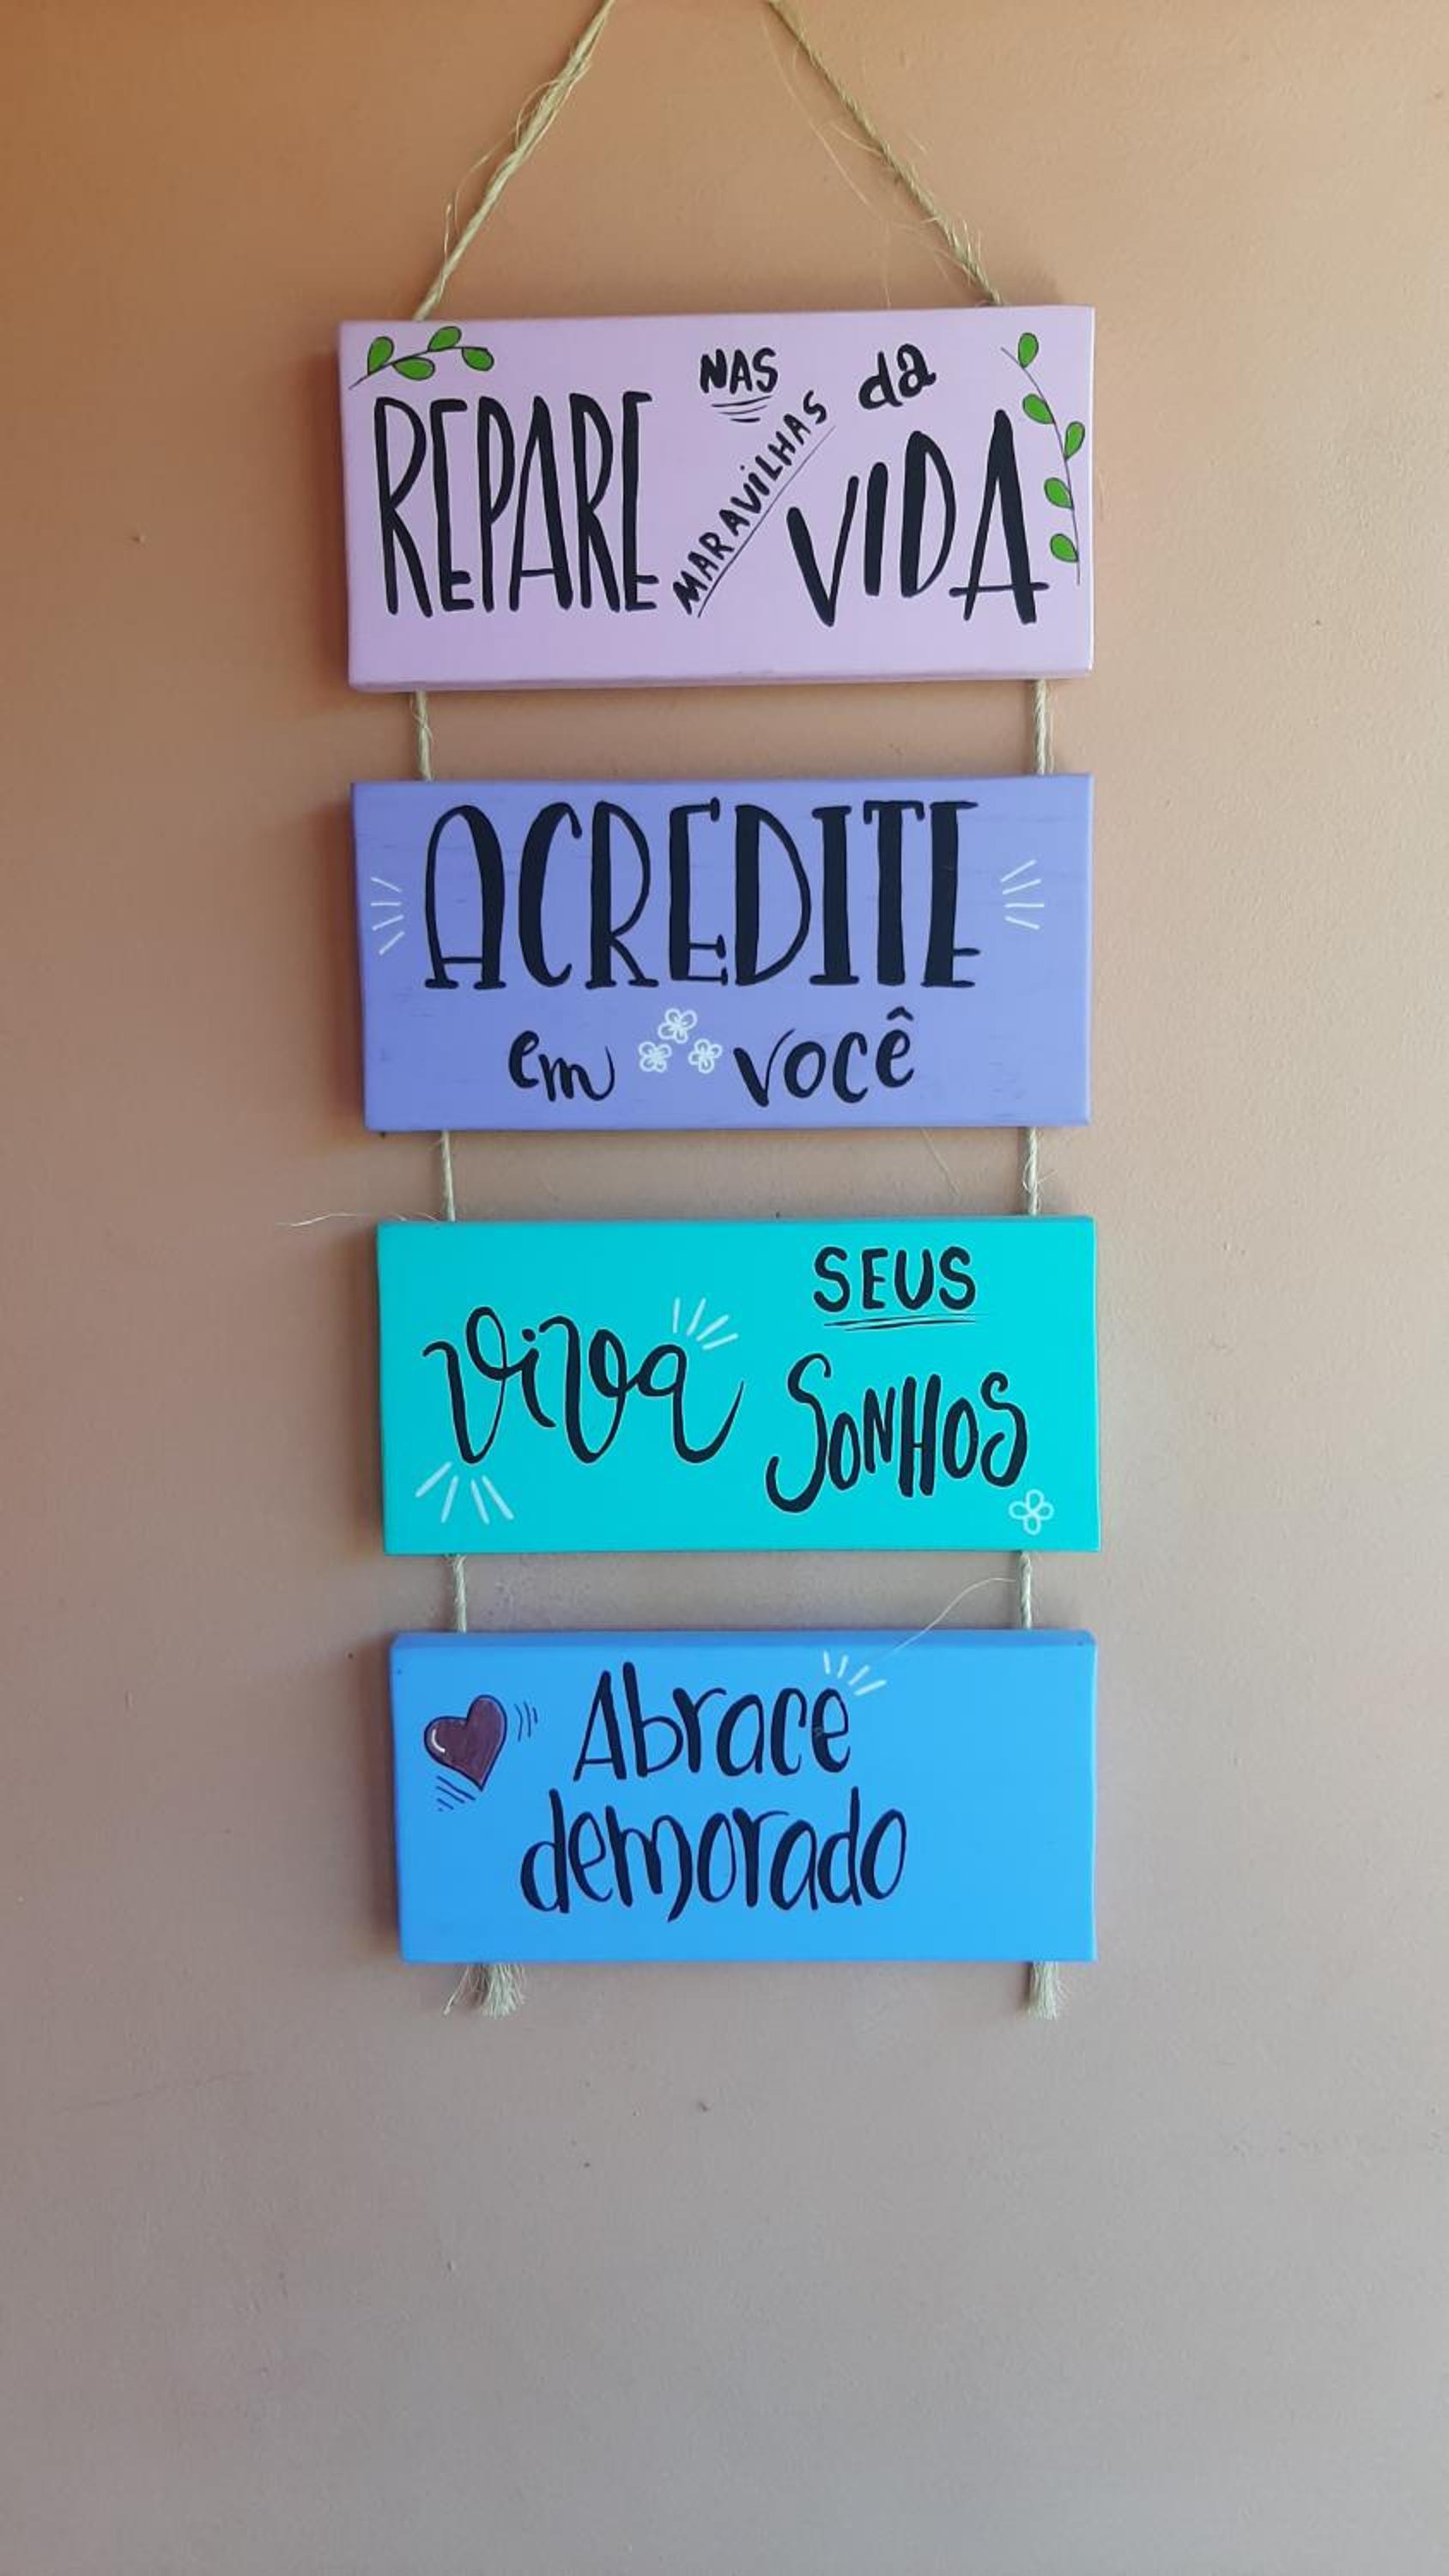 REPARE NAS MARAVILHAS da VIDA
ACREDITE
em você
Viva SEUS
SONHOS
Abrace
demorado